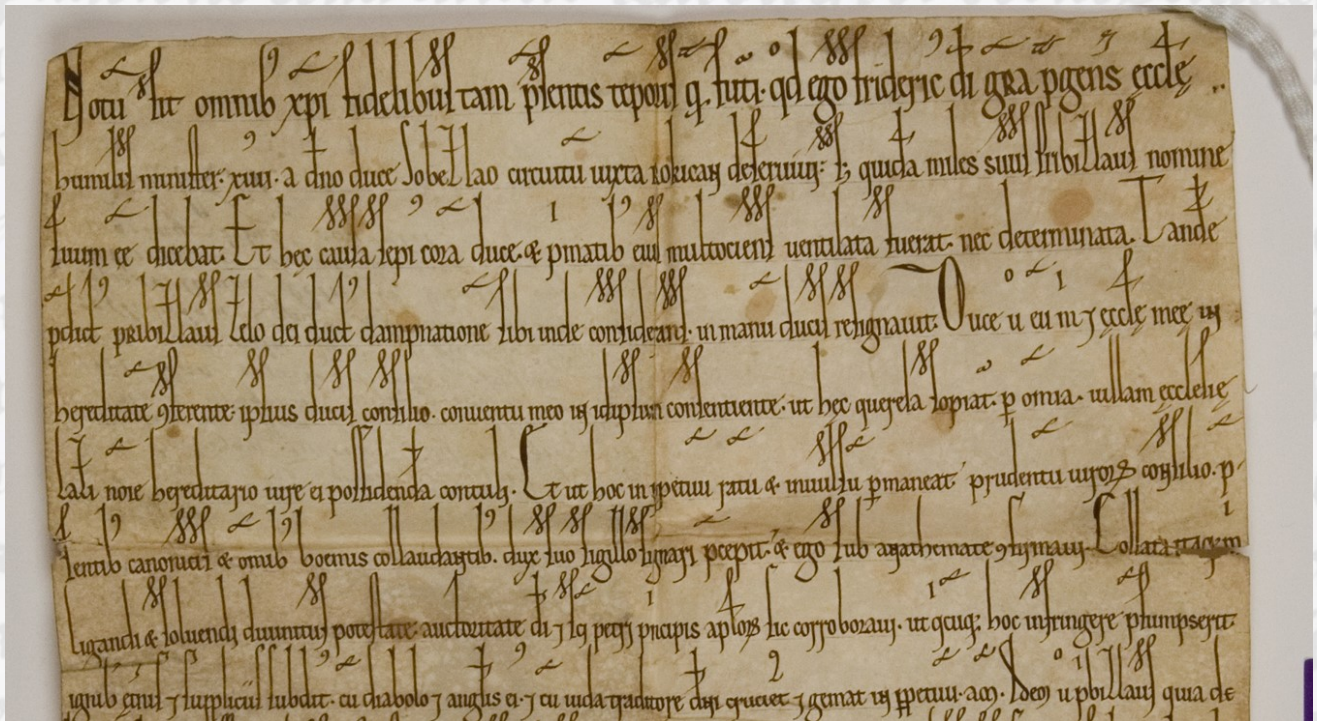 Notu sit omnib xpi fidelibus tam psentis teporis q. futi. qd ego frideric di gra pgens eccle
humilis minister. xiiii. a dno duce Sobezlao circuitu iuxta rokican deserviui. s; quida miles suus pribizlaus nomine
suum ee dicebat. Et hec causa sepi cora duce. & pmatib eius multociens uentilata fuerat. nec determinata. Tande
pdict pribizlaus zelo dei duct dampnatione sibi inde considerans. in manu ducis resignauit. Duce u eu in ⁊ eccle mee in
hereditate 9ferente. ipsius ducis consilio. conuentu meo in idipsum consentiente. ut hec querela sopiat. p omia. uillam ecclesie
noie hereditario iure ei possidenda contuli. Et ut hoc in ppetuu ratu & inuulsu pmaneat prudentu uiroꝝ consilio. p
sentib canonicis & omib boemis collaudantib. dux suo sigillo signari pcepit. & ego sub anathemate 9firmaui. Collata
ligandi & soluendi diuinitus potestate. auctoritate di ⁊ sci petri pncipis aploꝝ sic corroboraui. ut qcuq; hoc infringere psumpserit
ignib etnis ⁊ suppliciis subdit. cu diabolo ⁊ anglis ei. ⁊ cu iuda traditore dni cruciet ⁊ gemat in ppetuu. am. Idem u pbizlaus quia de